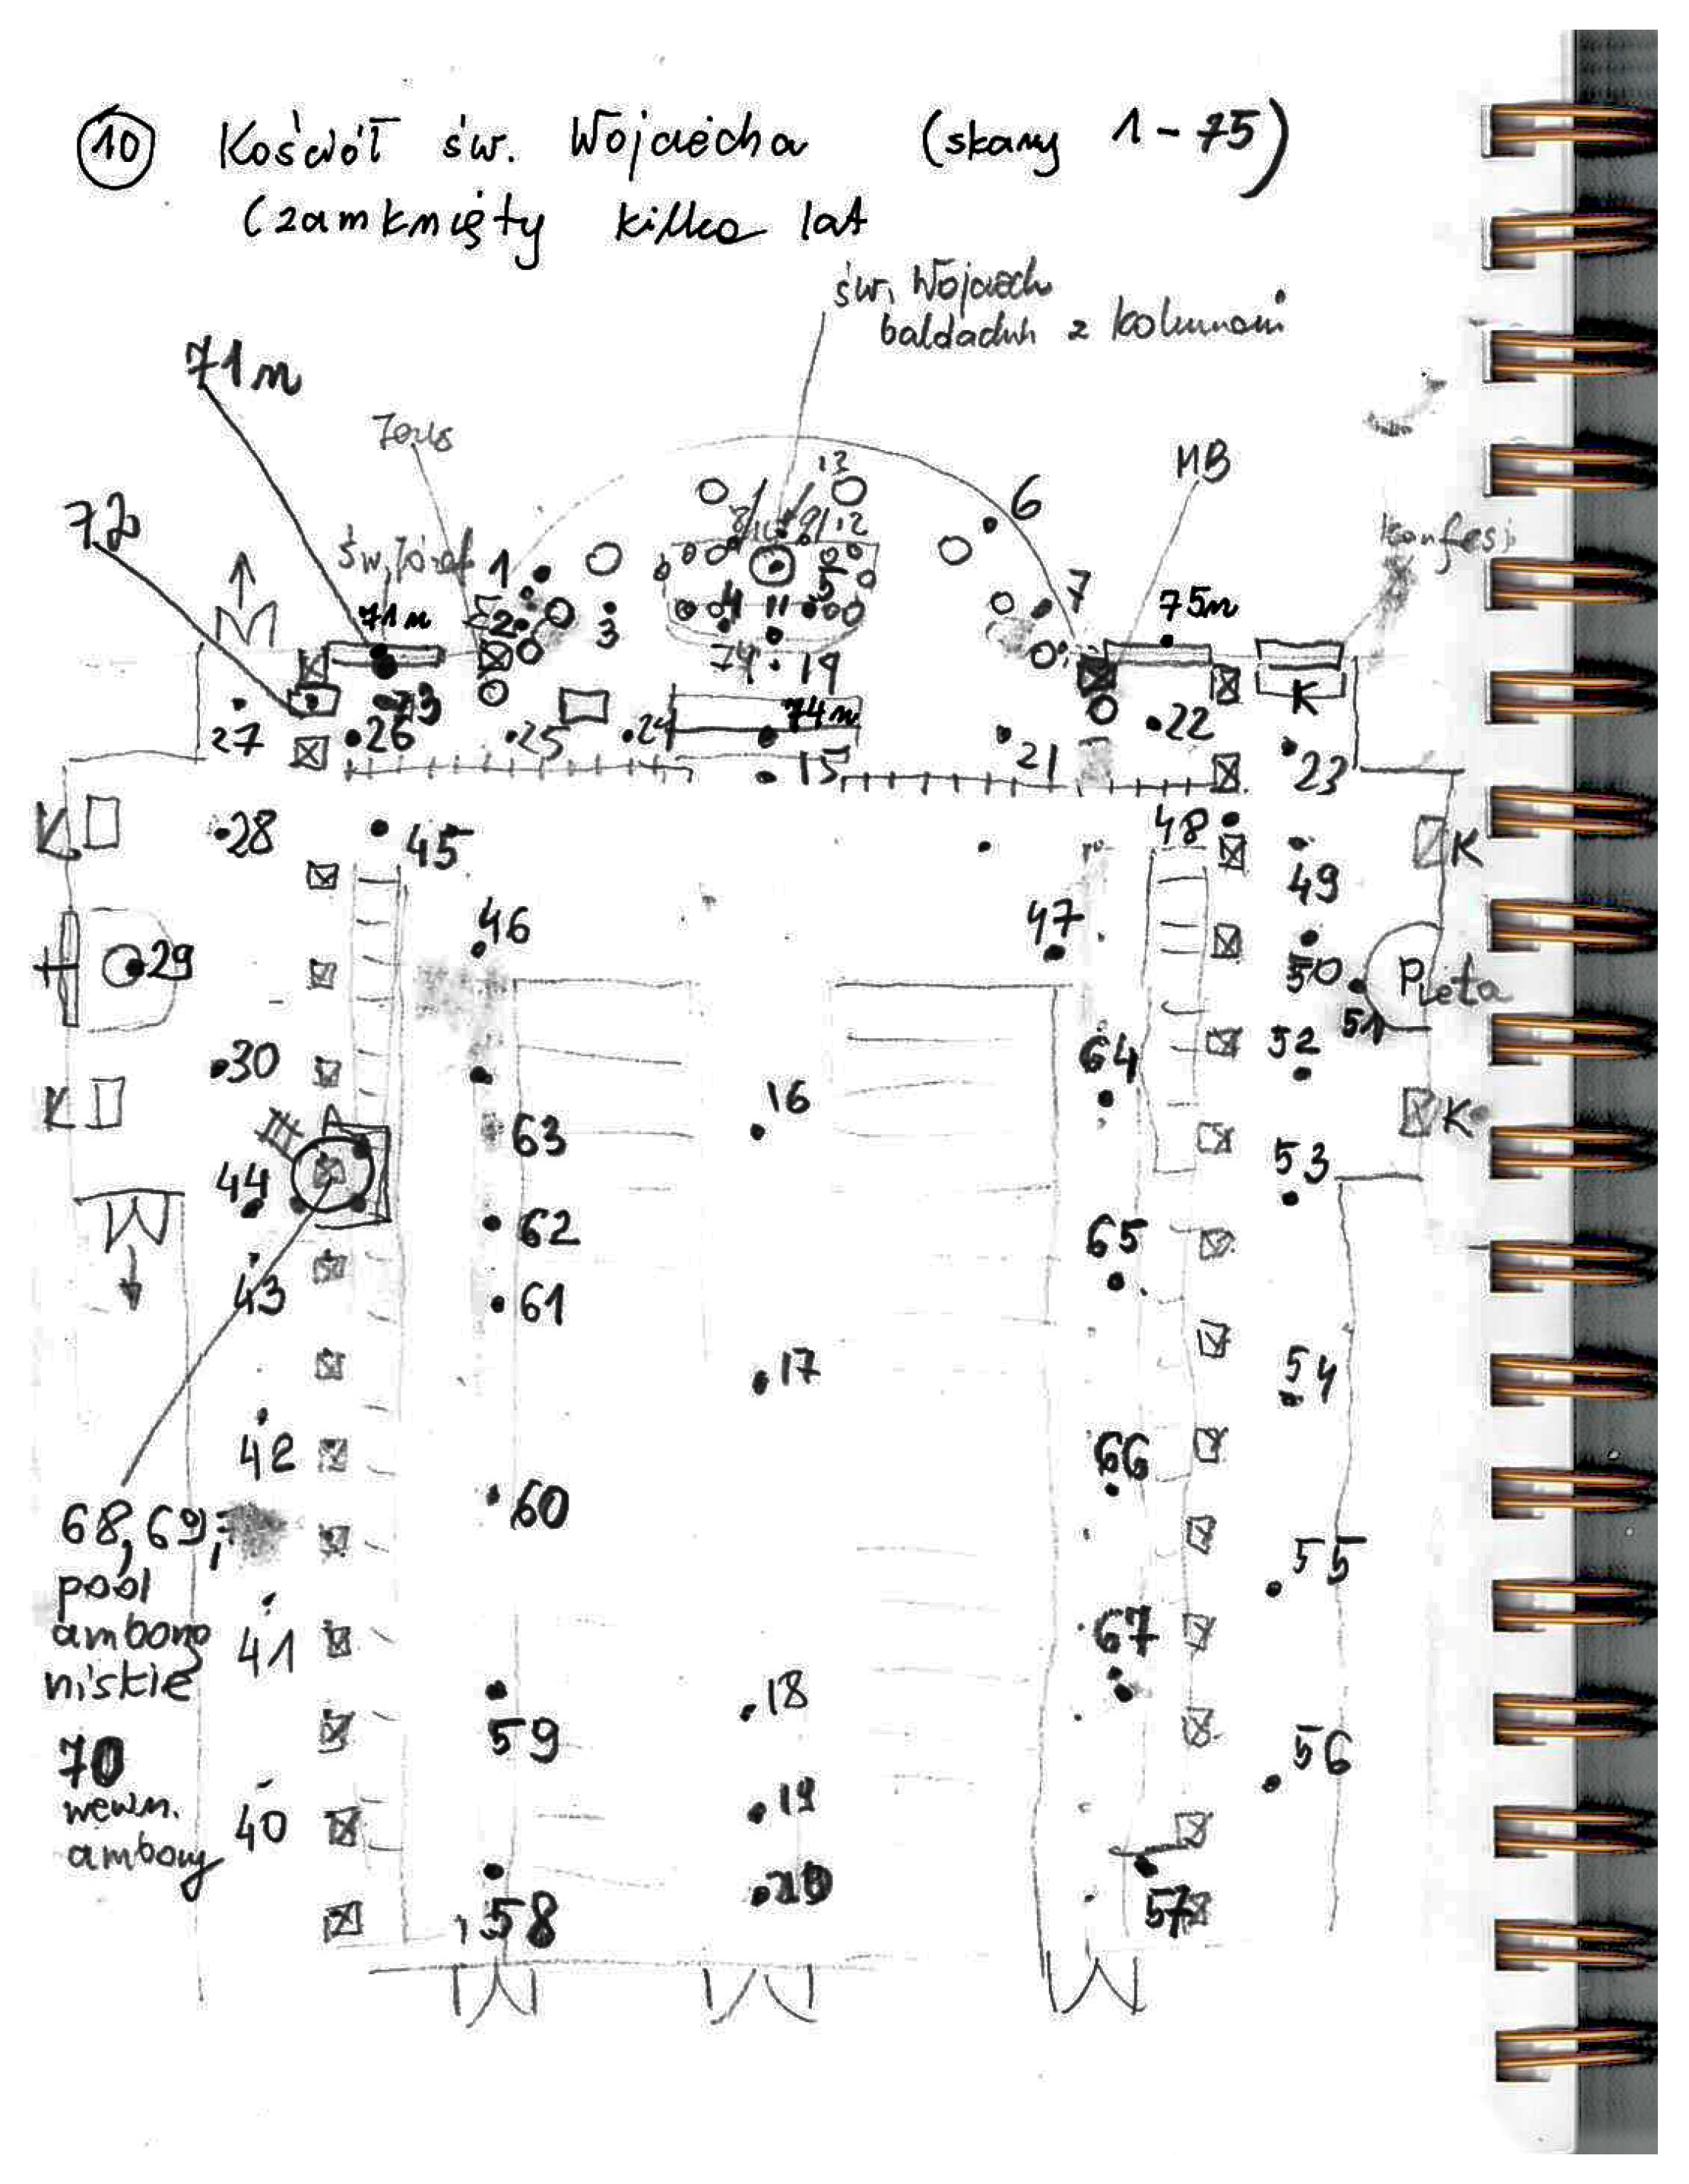 10 Kościół św. Wojciecha (skany 1-75)
(zamknięty kilka lat
św. Wojciech
baldachim z kolumnami
71n
Jezus
13
MB
6
72
św. Józef
1
12
Konfesj
5
7
71n
2
3
4
11
75n
74
14
K
73
74n
22
27
26
25
24
15
21
23
K
28
45
48
K
49
46
47
29
50
Pieta
51
30
64
52
16
K
K
63
53
44
62
65
43
61
17
54
42
66
68, 69,
60
55
pod
amboną
niskie
41
67
18
59
56
70
wewn.
ambony
40
19
20
58
57